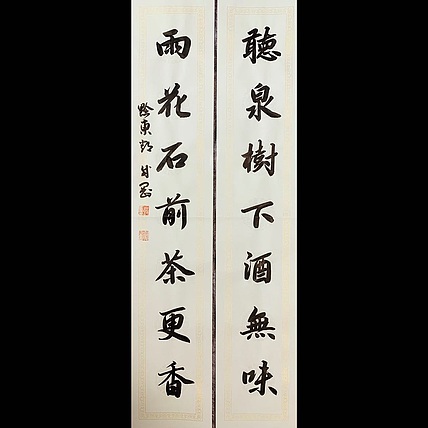 聽泉樹下酒無味
雨花石前茶更香